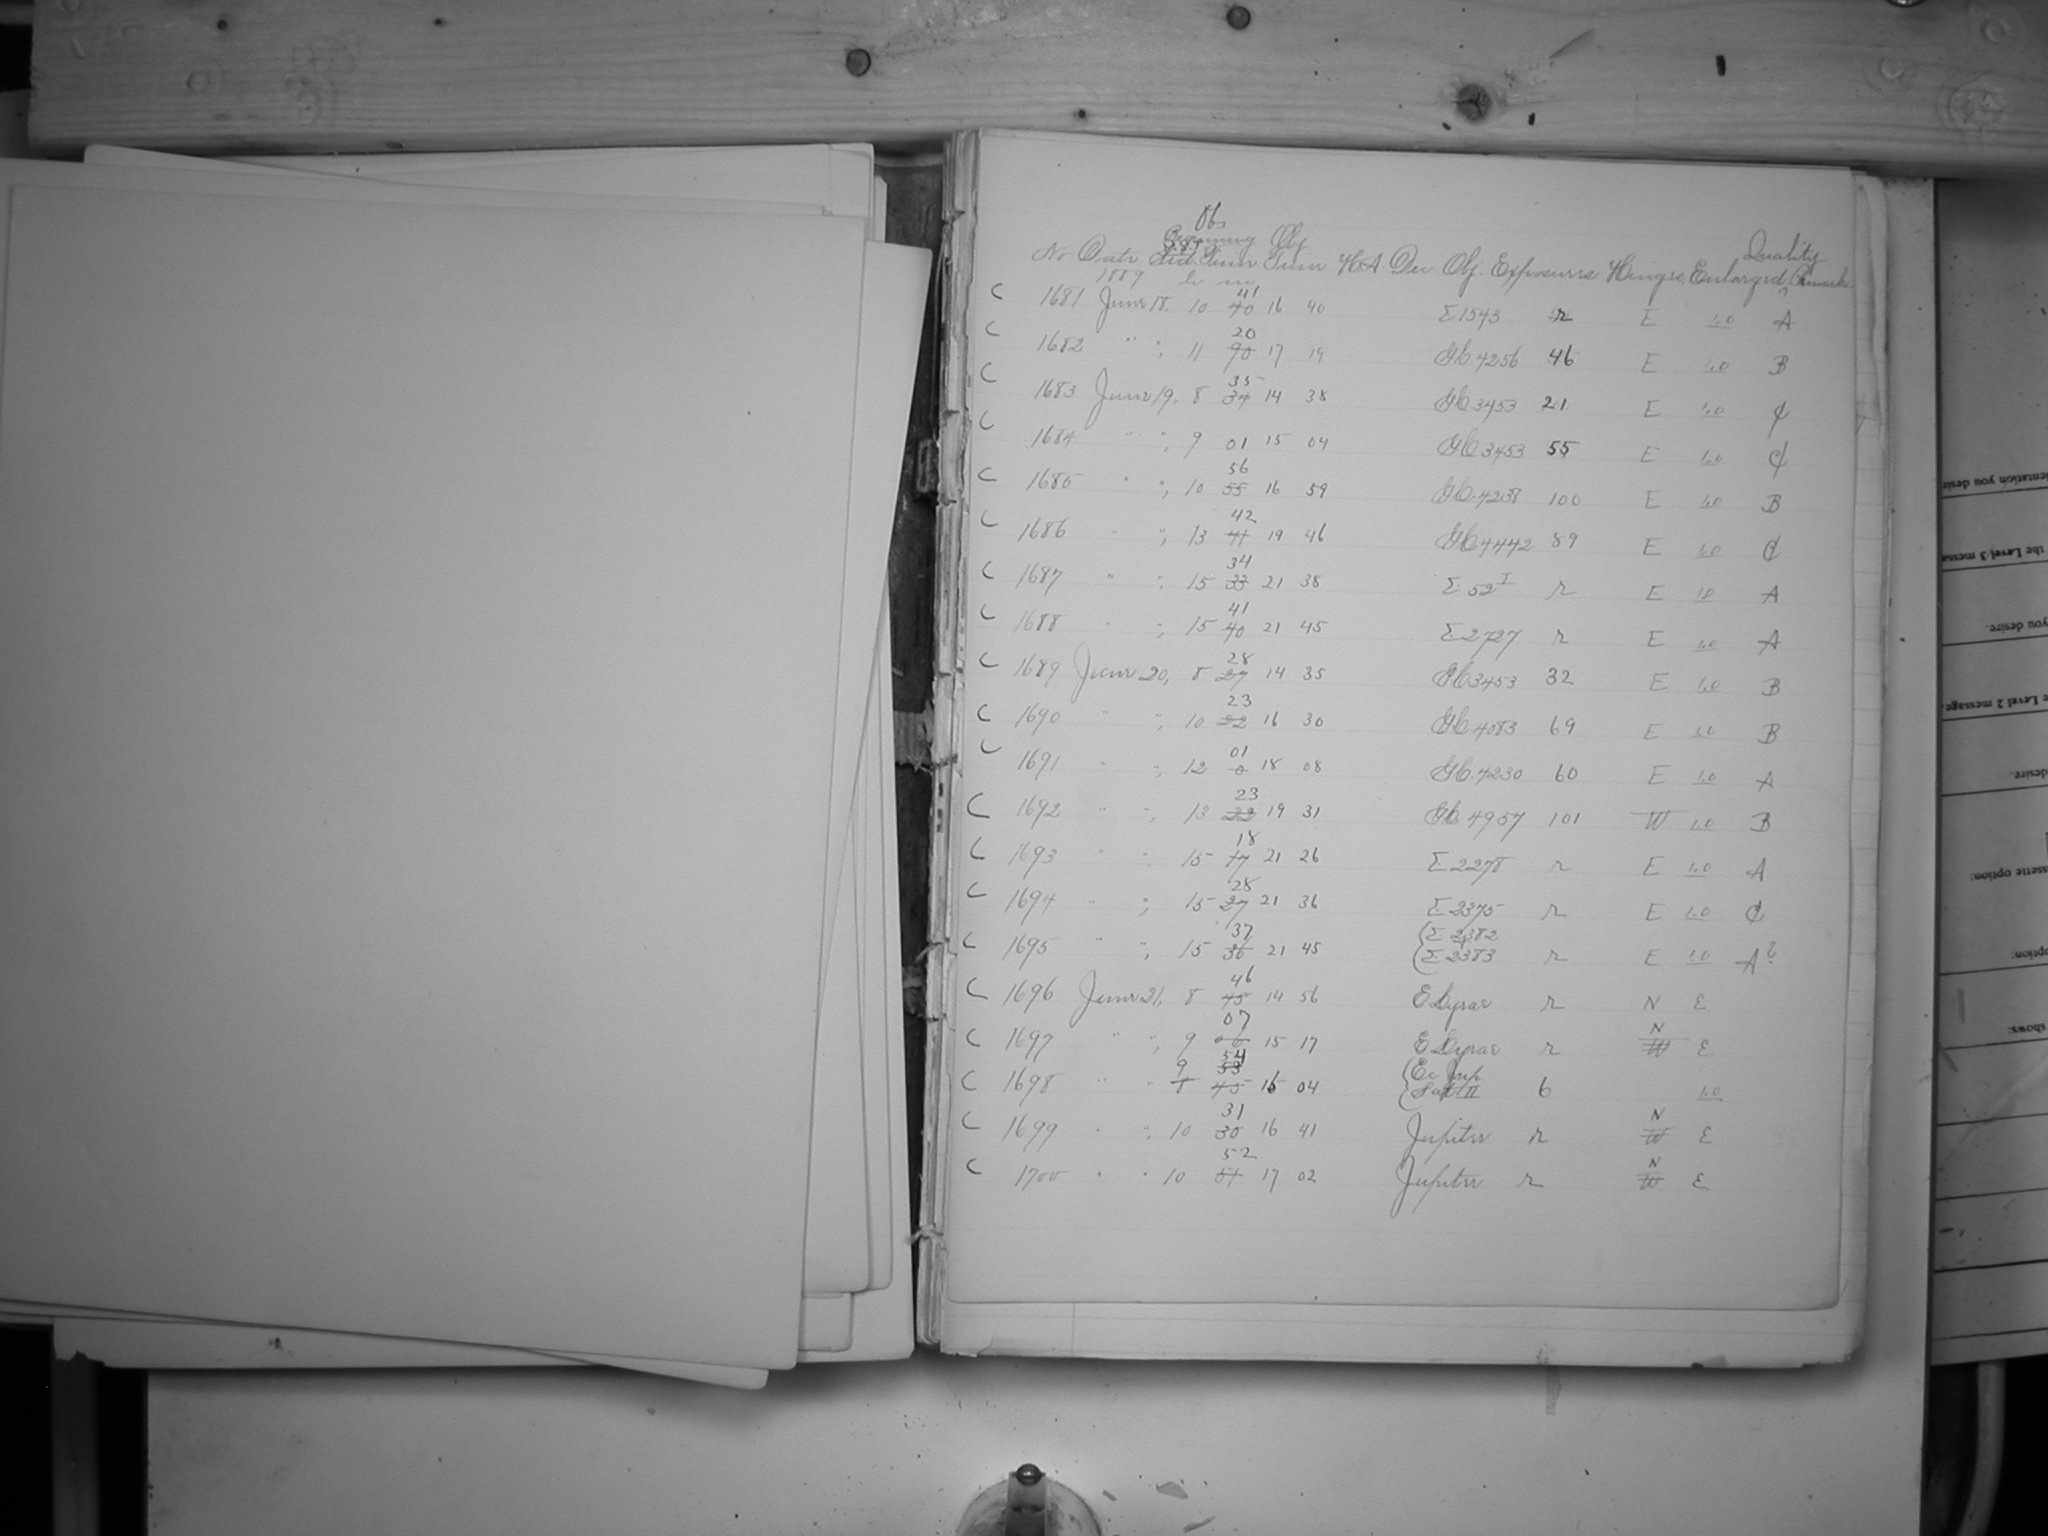 Obs
Beginning Obs Quality
No Date Std. Time Time HA Dec Obj. Exposures Hinges Enlarged, Remarks
1889 h m
41
C 1681 June 18, 10 40 16 40 Σ1543 r E 1.0 A
20
C 1682 " " ; 11 90 17 19 GC.4256 46 E 1.0 B
35
C 1683 June 19, 8 34 14 38 GC3453 21 E 1.0 C
C 1684 " " ; 9 01 15 04 GC3453 55 E 1.0 C
56
C 1685 " " ; 10 55 16 59 GC.4238 100 E 1.0 B
42
C 1686 " ; 13 41 19 46 GC.4442 89 E 1.0 C
34
C 1687 " ; 15 33 21 38 Σ 52 I r E 1.0 A
41
C 1688 " ; 15 40 21 45 Σ2727 r E 1.0 A
28
C 1689 June 20, 8 27 14 35 GC3453 32 E 1.0 B
23
C 1690 " " ; 10 22 16 30 GC.4083 69 E 1.0 B
01
C 1691 " " ; 12 0 18 08 GC.4230 60 E 1.0 A
23
C 1692 " " ; 13 22 19 31 GC 4957 101 W 1.0 B
18
C 1693 " " ; 15 17 21 26 Σ2278 r E 1.0 A
28
C 1694 " " ; 15 27 21 36 Σ2375 r E 1.0 C
37 Σ 2382
C 1695 " " ; 15 36 21 45 Σ 2383 r E 1.0 A?
46
C 1696 June 21, 8 45 14 56 E Lyrae r N E
07 N
C 1697 " " ; 9 06 15 17 E Lyrae r W E
54
9 53 Ec Jup
C 1698 " " 8 45 16 04 Sat II 6 1.0
31 N
C 1699 " ; 10 30 16 41 Jupiter r W E
52 N
C 1700 " " 10 51 17 02 Jupiter r W E
entation you desir
the Level 3 messa
you desire.
e Level 2 message
desire.
ssette option:
option:
shows: